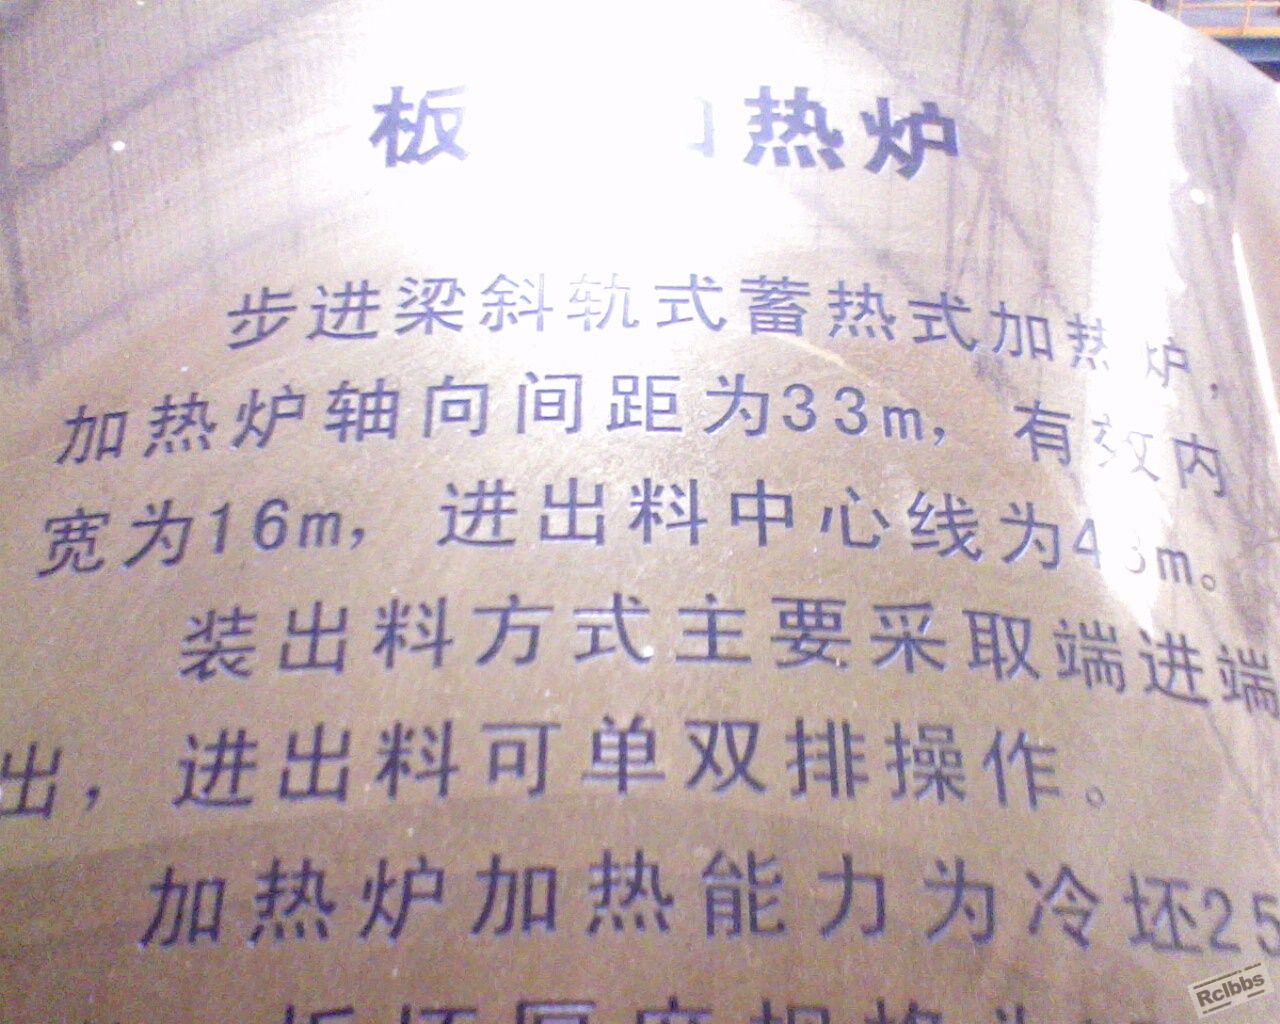 板 热炉
步进梁斜轨式蓄热式加热炉,
加热炉轴向间距为33m, 有效内
宽为16m, 进出料中心线为43m。
装出料方式主要采取端进端
出, 进出料可单双排操作。
加热炉加热能力为冷坯25
Rclbbs